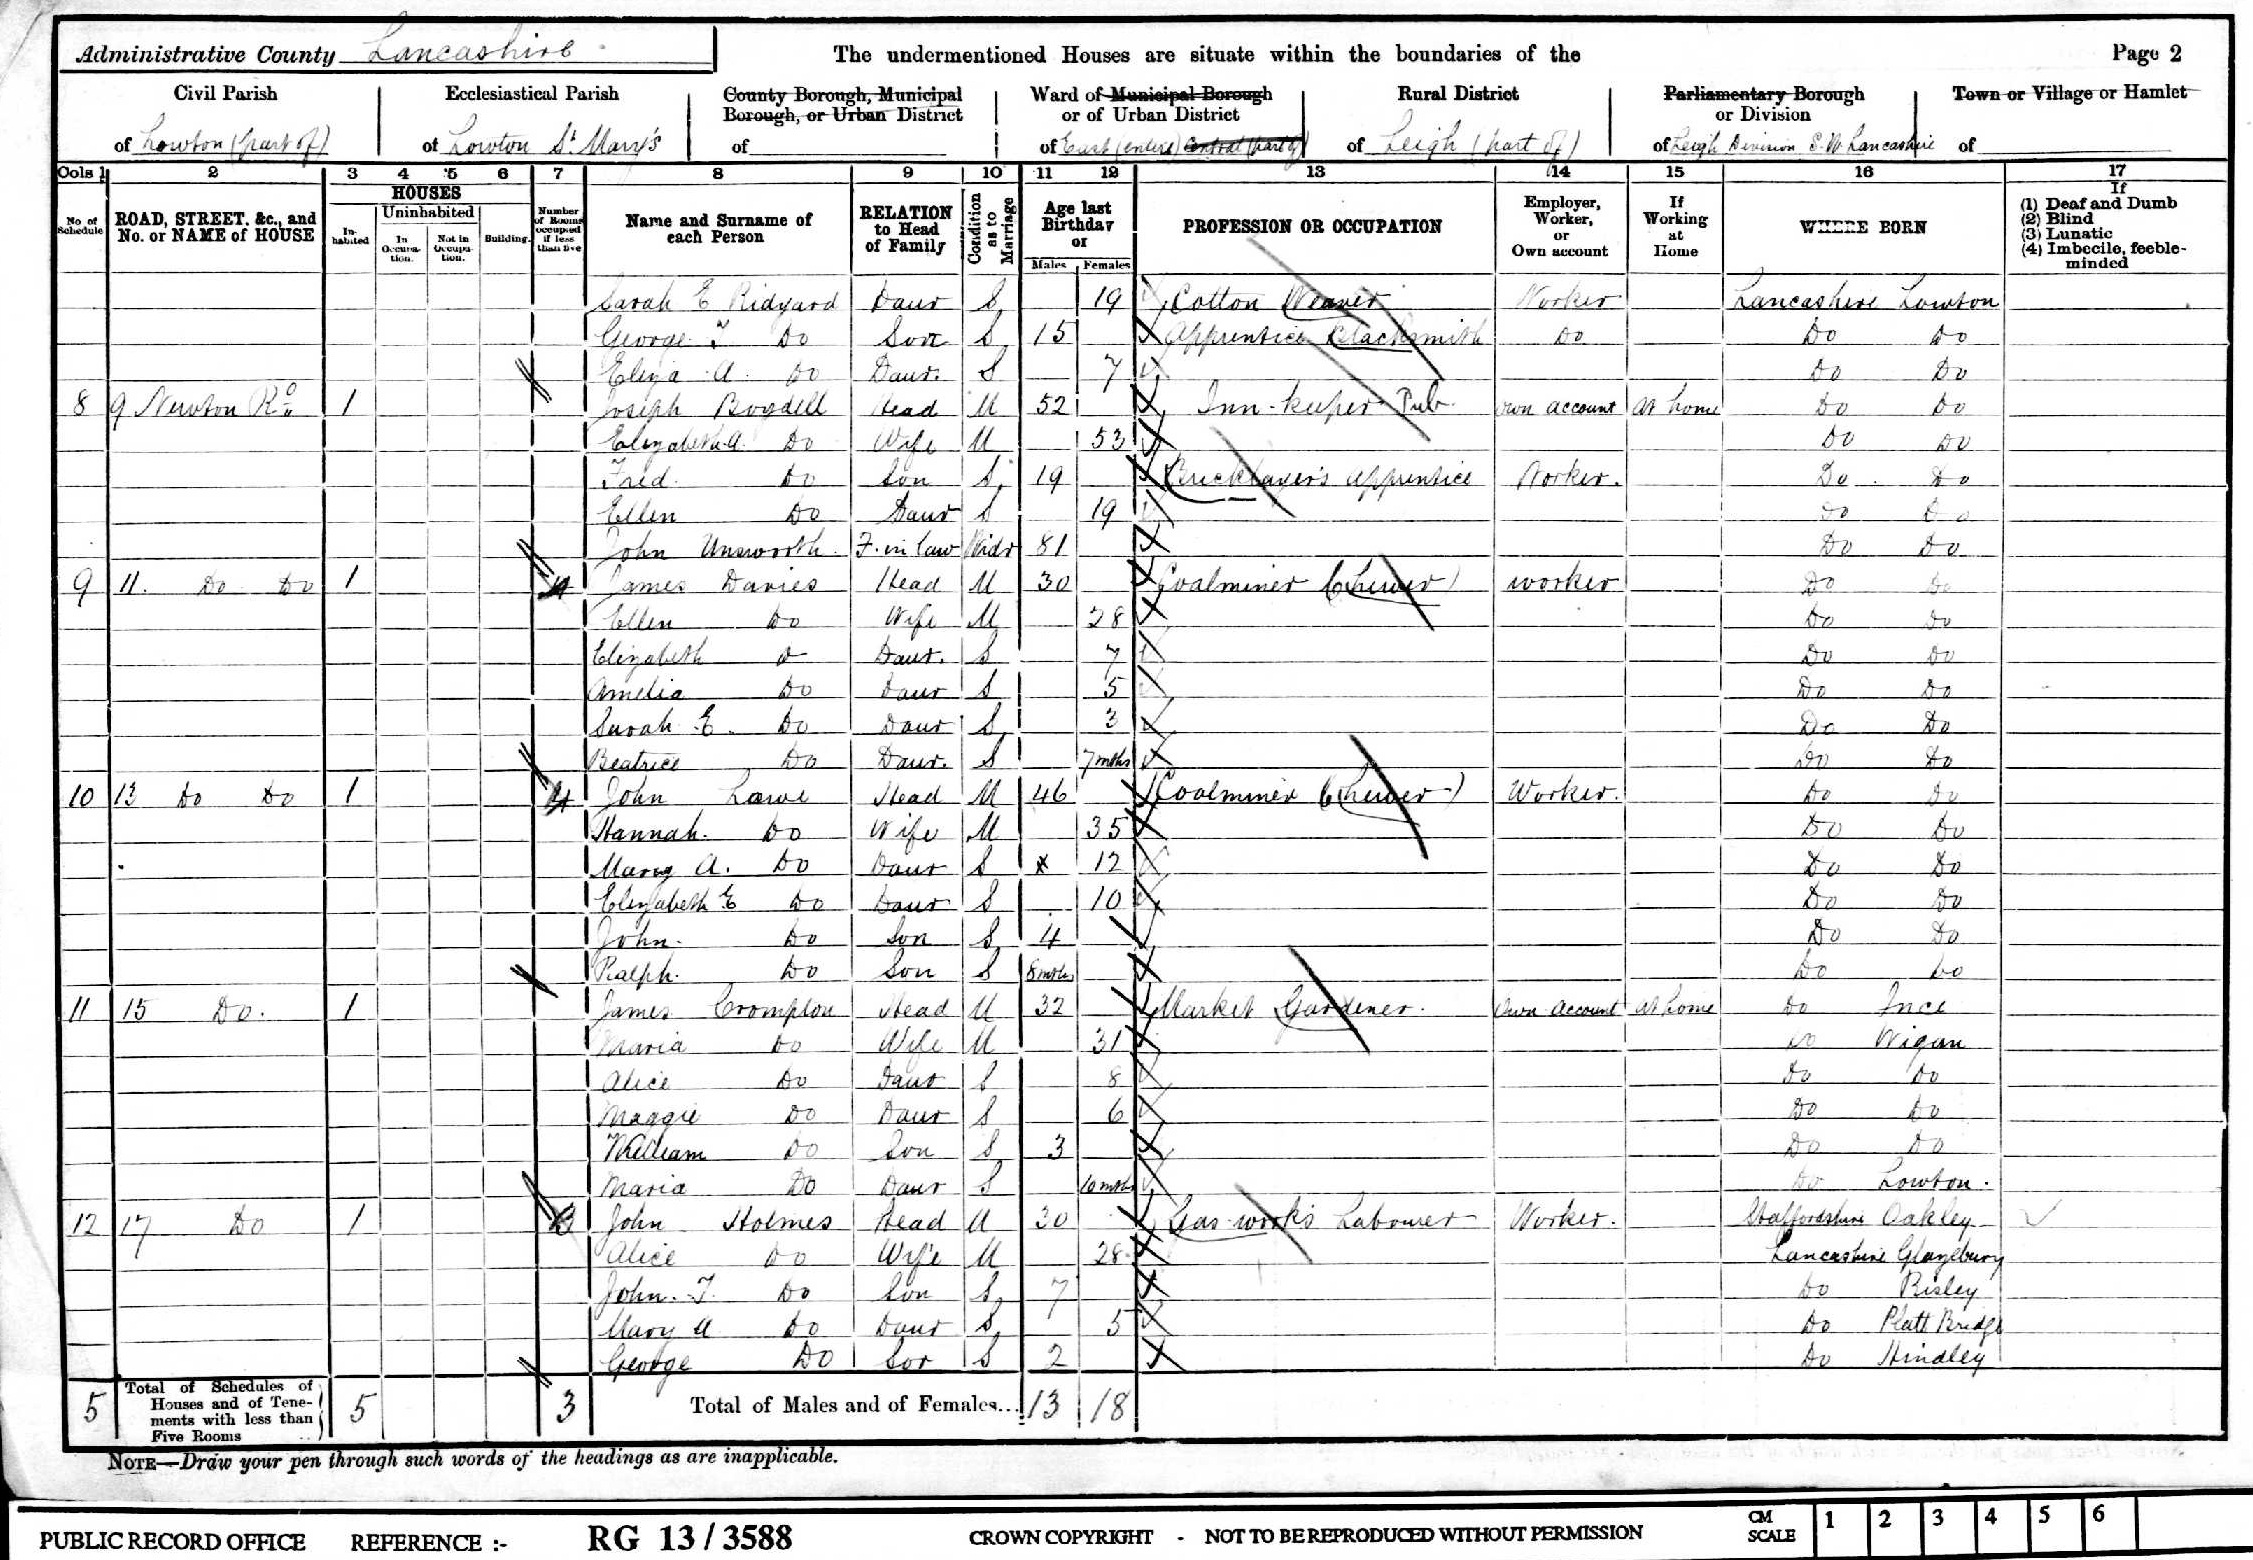 Administrative County Lancashire
The undermentioned Houses are situate within the boundaries of the
Page 2
Civil Parish
of Lowton (part of)
Ecclesiastical Parish
of Lowton St Mary's
County Borough, Municipal
Borough, or Urban District
of
Ward of Municipal Borough
or of Urban District
of East (entire) Central (part of)
Rural District
of Leigh (part of)
Parliamentary Borough
or Division
of Leigh Division S.W. Lancashire
Town or Village or Hamlet
of
Cols 1 2 3 4 5 6 7 8 9 10 11 12 13 14 15 16 17
No of Schedule
ROAD, STREET, &c., and No. or NAME of HOUSE
HOUSES
Inhabited
Uninhabited
In Occupation.
Not in Occupation.
Building.
Number of Rooms occupied if less than five
Name and Surname of each Person
RELATION to Head of Family
Condition as to Marriage
Age last Birthday of
Males Females
PROFESSION OR OCCUPATION
Employer, Worker, or Own account
If Working at Home
WHERE BORN
If
(1) Deaf and Dumb
(2) Blind
(3) Lunatic
(4) Imbecile, feeble-minded
Sarah E Ridyard Daur S 19 Cotton Weaver Worker Lancashire Lowton
George T Do Son S 15 Apprentice Blacksmith Do Do Do
Eliza A. Do Daur. S 7 Do Do
8 9 Newton Rd 1 Joseph Boydell Head M 52 Inn-keeper Pub. Own account At home Do Do
Elizabeth A. Do Wife M 53 Do Do
Fred. Do Son S 19 Bricklayer's Apprentice Worker. Do Do
Ellen Do Daur S 19 Do Do
John Unsworth F. in law Widr 81 Do Do
9 11. Do Do 1 4 James Davies Head M 30 Coalminer (Hewer) worker Do Do
Ellen Do Wife M 28 Do Do
Elizabeth Do Daur. S 7 Do Do
Amelia Do Daur S 5 Do Do
Sarah E. Do Daur S 3 Do Do
Beatrice Do Daur. S 7 mths Do Do
10 13 Do Do 1 4 John Lowe Head M 46 Coalminer (Hewer) Worker. Do Do
Hannah. Do Wife M 35 Do Do
Mary A. Do Daur S 12 Do Do
Elizabeth E Do Daur S 10 Do Do
John. Do Son S 4 Do Do
Ralph. Do Son S 8 mths Do Do
11 15 Do. 1 James Crompton Head M 32 Market Gardener. Own account At home Do Ince
Maria Do Wife M 31 Do Wigan
Alice Do Daur S 8 Do Do
Maggie Do Daur S 6 Do Do
William Do Son S 3 Do Do
Maria Do Daur S 10 mths Do Lowton.
12 17 Do 1 3 John Holmes Head M 30 Gas-works Labourer Worker. Staffordshire Oakley
Alice Do Wife M 28 Lancashire Glazebury
John. T. Do Son S 7 Do Risley
Mary A Do Daur S 5 Do Platt Bridge
George Do Son S 2 Do Hindley
5 Total of Schedules of Houses and of Tenements with less than Five Rooms 5 3 Total of Males and of Females... 13 18
NOTE—Draw your pen through such words of the headings as are inapplicable.
PUBLIC RECORD OFFICE REFERENCE :- RG 13 / 3588 CROWN COPYRIGHT - NOT TO BE REPRODUCED WITHOUT PERMISSION CM SCALE 1 2 3 4 5 6